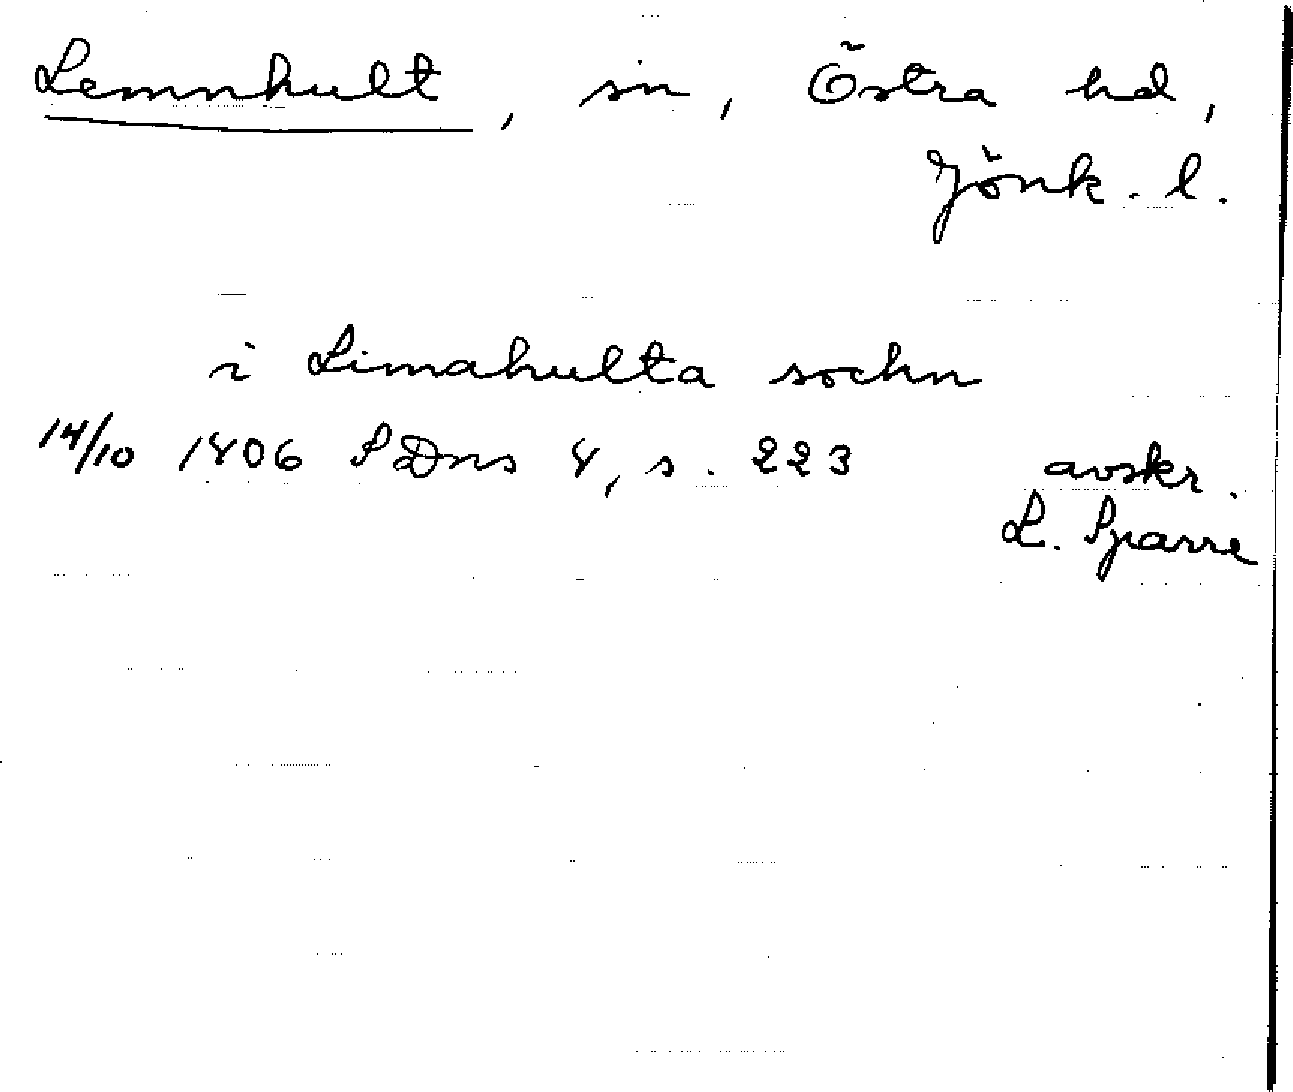 Lemnhult, sn, Östra hd,
Jönk. l.
i Limahulta sochn
14/10 1406 SDns 4, s. 223 avskr.
L. Sparre